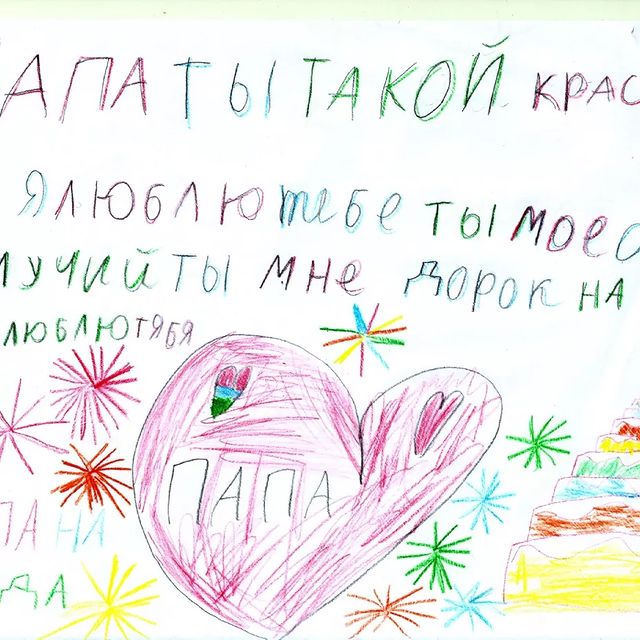 АПА ТЫ ТАКОЙ КРАС
Я ЛЮБЛЮ тебе ТЫ МОЕ
ЛУЧИЙ ТЫ МНЕ ДОРОК НА
ЛЮБЛЮ ТЯБЯ
ПАПА
ПА НА
ДА